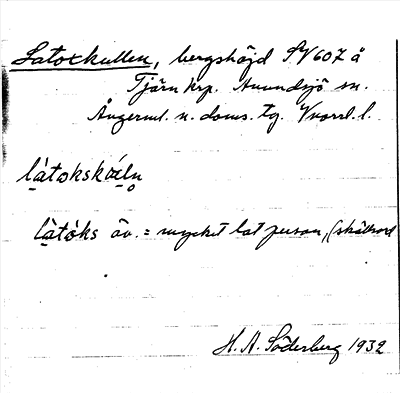 Latoxkullen, bergshöjd SV 607 å
Tjärn krp. Anundsjö sn.
Ångerml. n. doms. tg. Vnorrl. l.
làtoksko̤l̥n
làtòks äv. = mycket lat person, (skällsord
H. A. Söderberg 1932